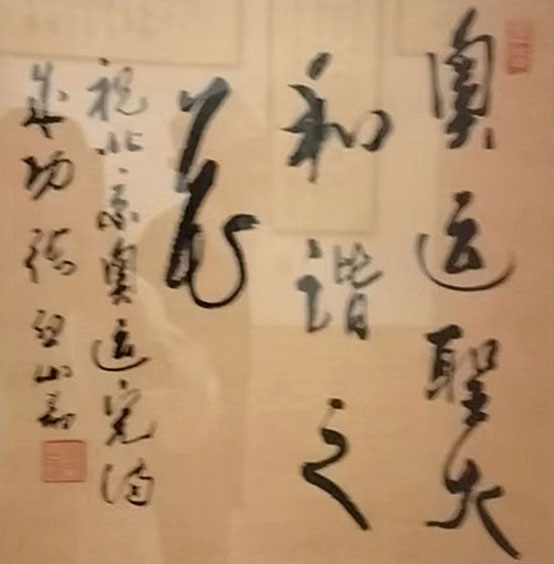 奥运聖火
和谐之
花
祝北京奥运完满
成功 張